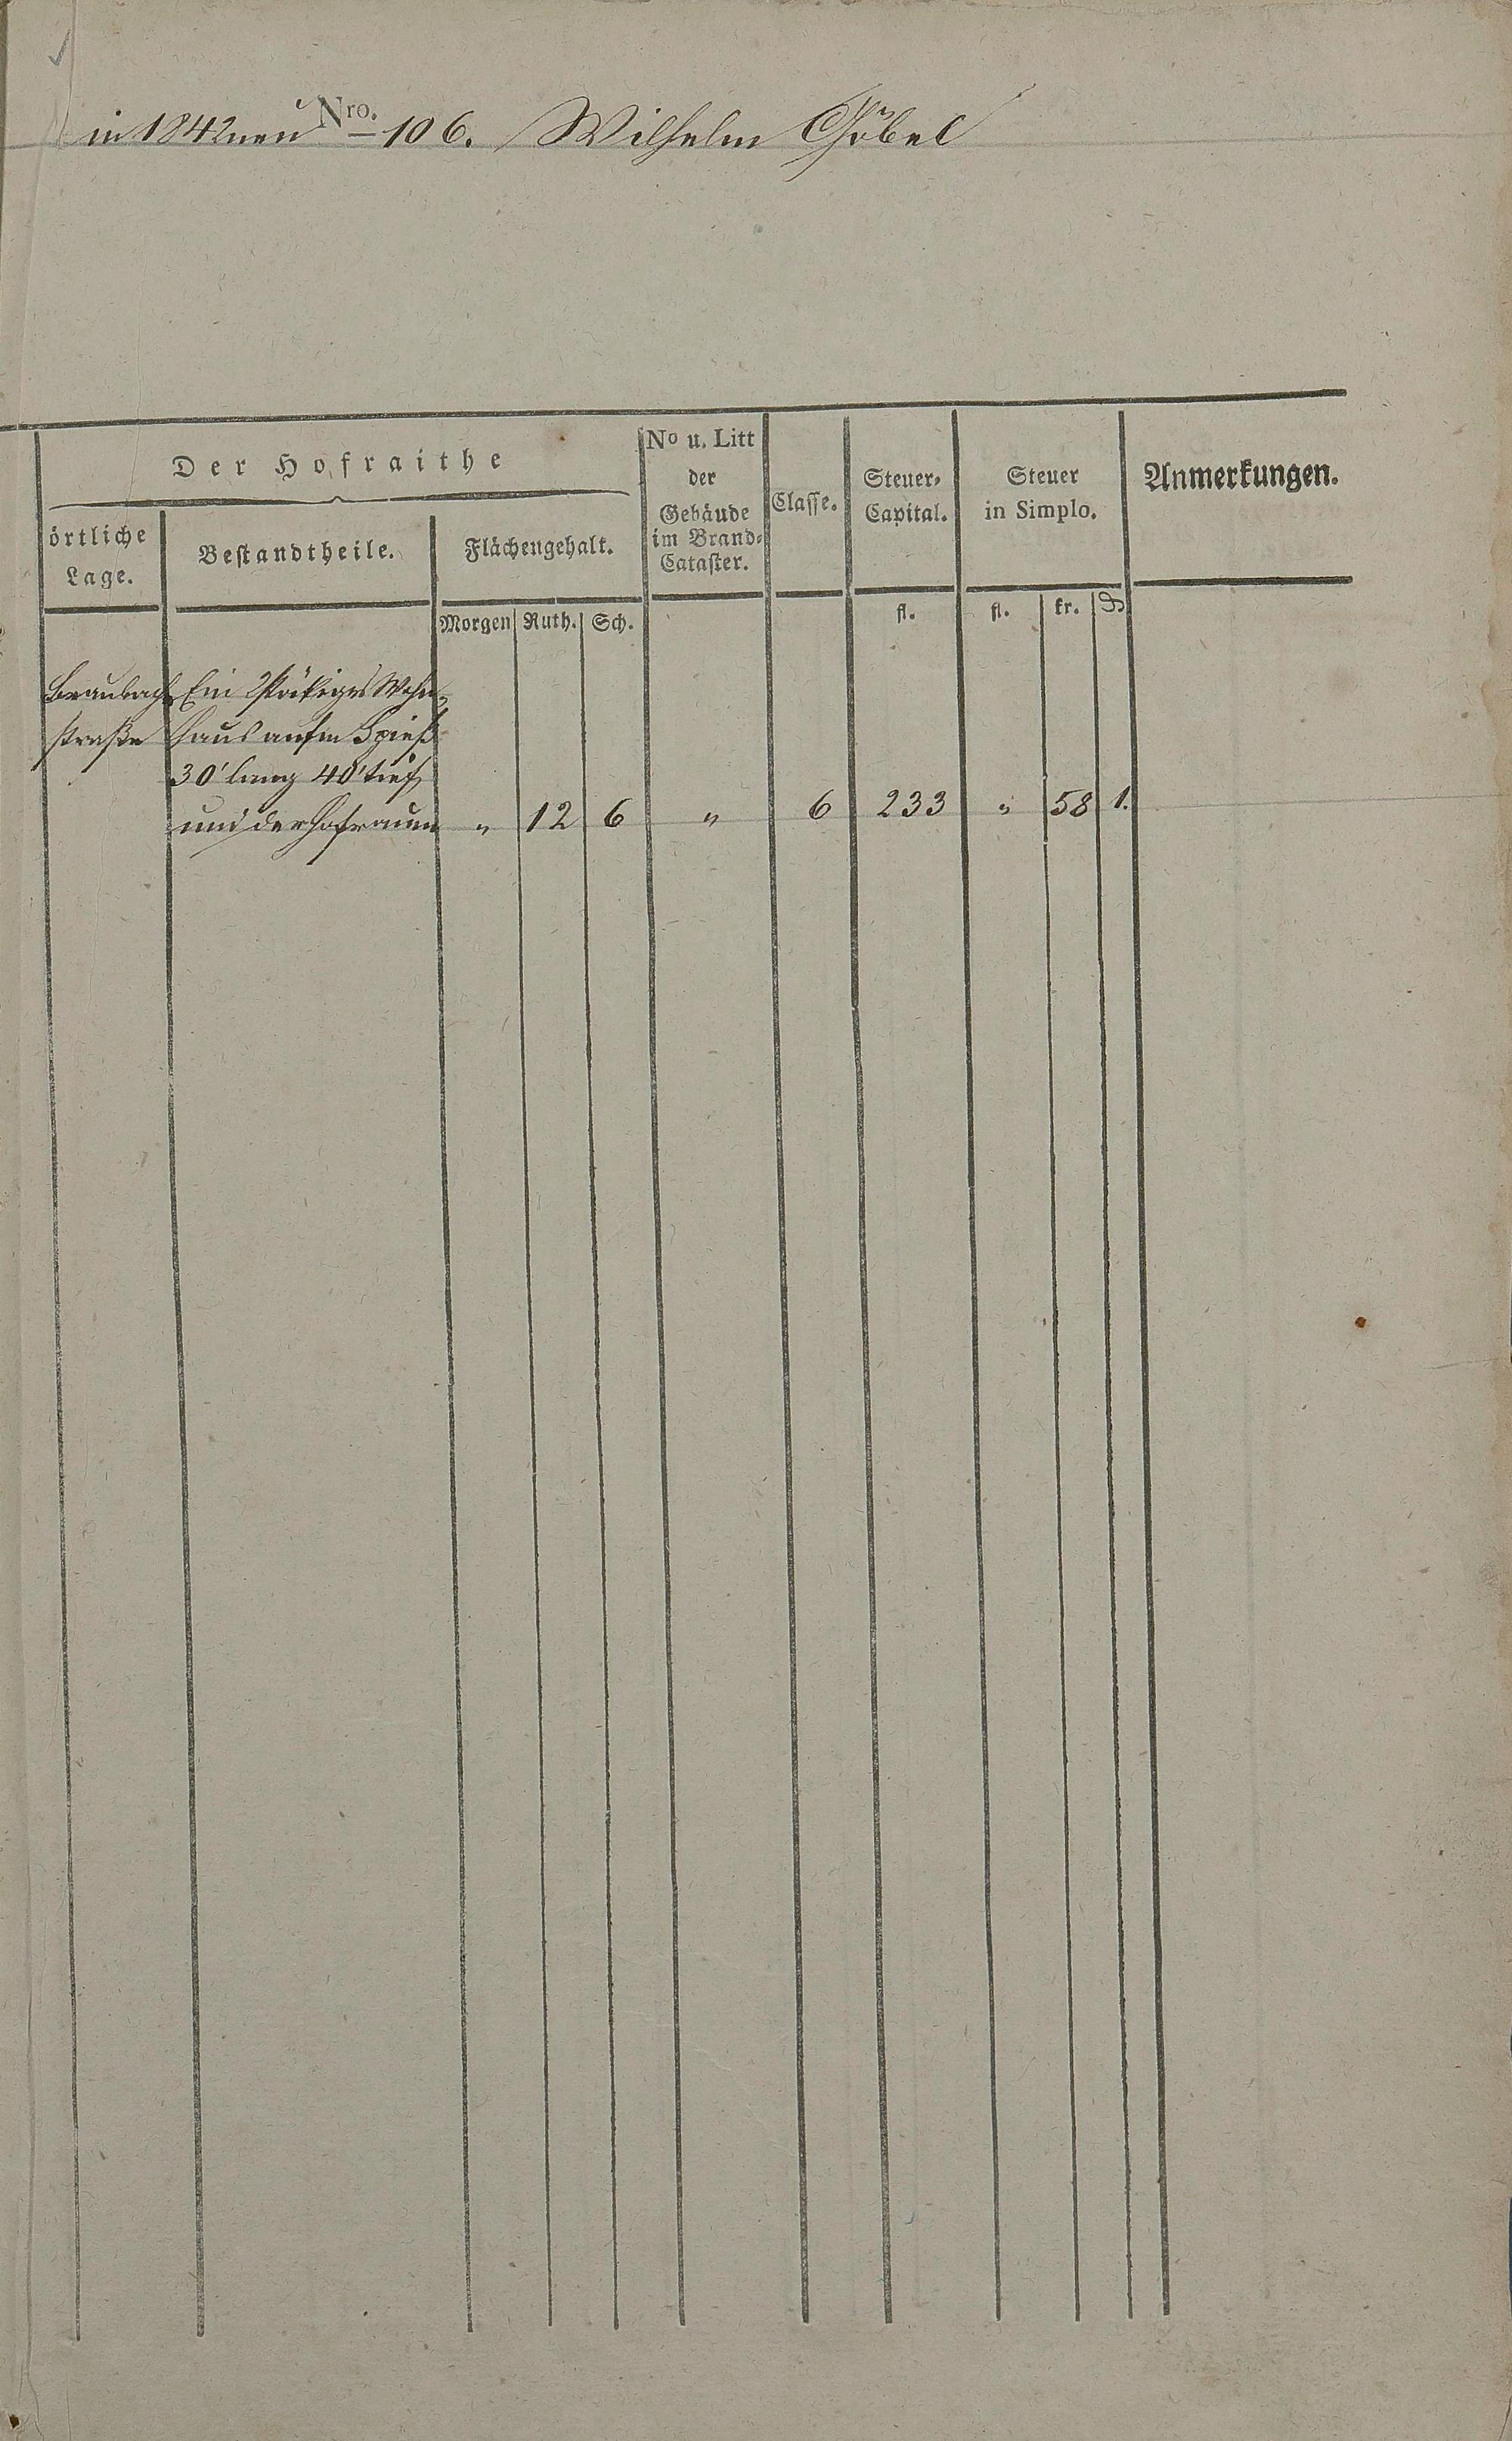 in 1842 neu Nro. 106. Wilhelm Göbel
Der Hofraithe
örtliche
Lage.
Bestandtheile.
Flächengehalt.
No u. Litt
der
Gebäude
im Brand-
Cataster.
Classe.
Steuer-
Capital.
Steuer
in Simplo.
Anmerkungen.
Morgen Ruth. Sch. fl. fl. kr. ₰
Braubach Ein 2stökiges Wohn-
straße haus aufm Spieß
30' lang 40' tief
und der Hofraum " 12 6 " 6 233 " 58 1.